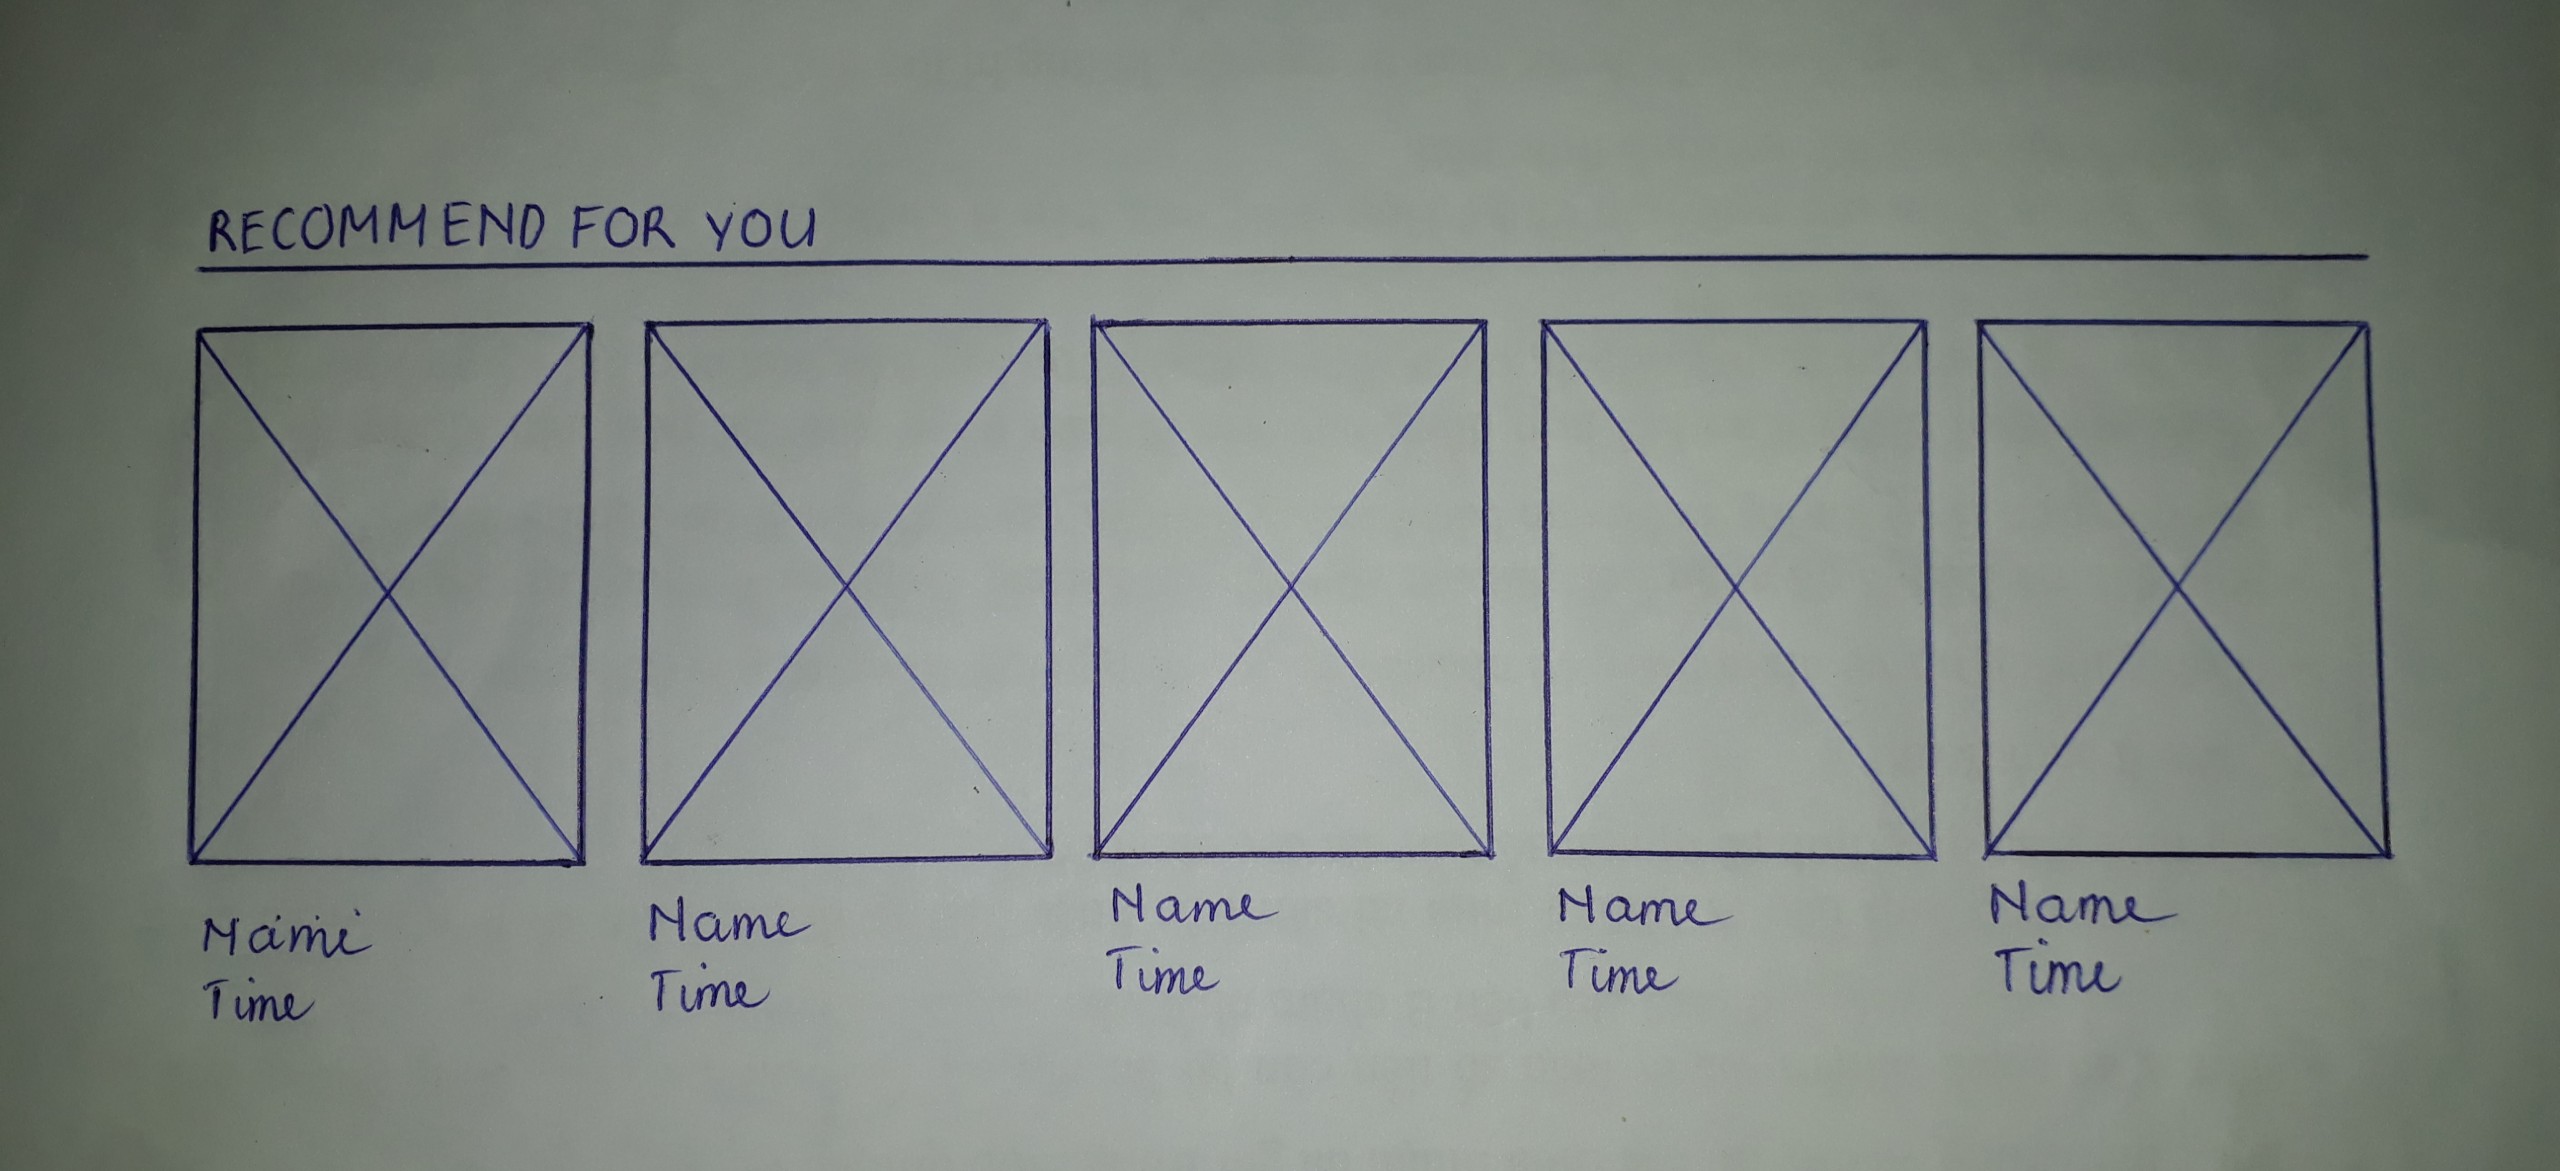 RECOMMEND FOR YOU
Name
Time
Name
Time
Name
Time
Name
Time
Name
Time